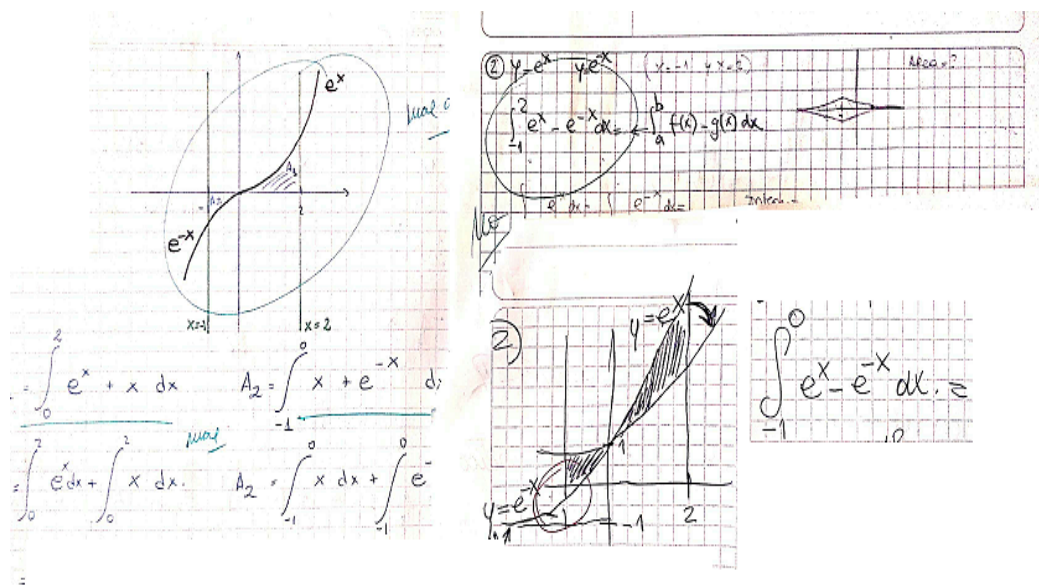 e^x
mal
A_1
2
e^{-x}
x=-1
x=2
= ∫_0^2 e^x + x dx
A_2 = ∫_{-1}^0 x + e^{-x} d
mal
= ∫_0^2 e^x dx + ∫_0^2 x dx.
A_2 = ∫_{-1}^0 x dx + ∫_{-1}^0 e^-
=
② y=e^x y=e^{-x} (x=-1 y x=2) Area=?
∫_{-1}^2 e^x - e^{-x} dx = ← ∫_a^b f(x) - g(x) dx
∫ e^x dx - ∫ e^{-x} dx=
No
2)
y=e^x
1
y=e^{-x}
-1
-1
-1
2
∫_{-1}^0 e^x - e^{-x} dx. =